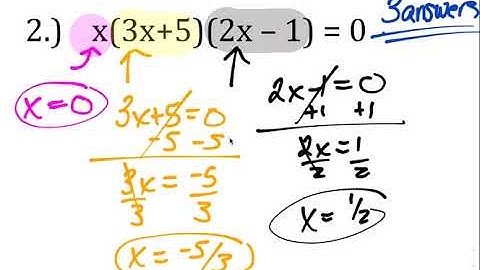 2.) x(3x+5)(2x – 1) = 0
3 answers
x=0
3x+5=0
-5 -5
3x = -5
3 3
x = -5/3
2x-1=0
+1 +1
2x = 1
2 2
x = 1/2